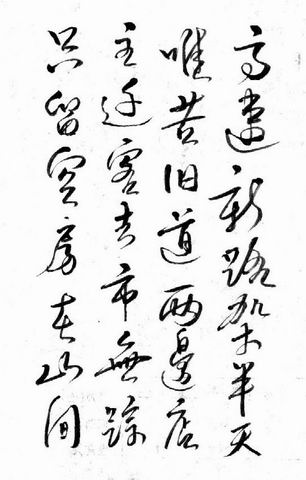 高速新路架半天
唯苦旧道两边店
主迁客去市無踪
只留空房在山间